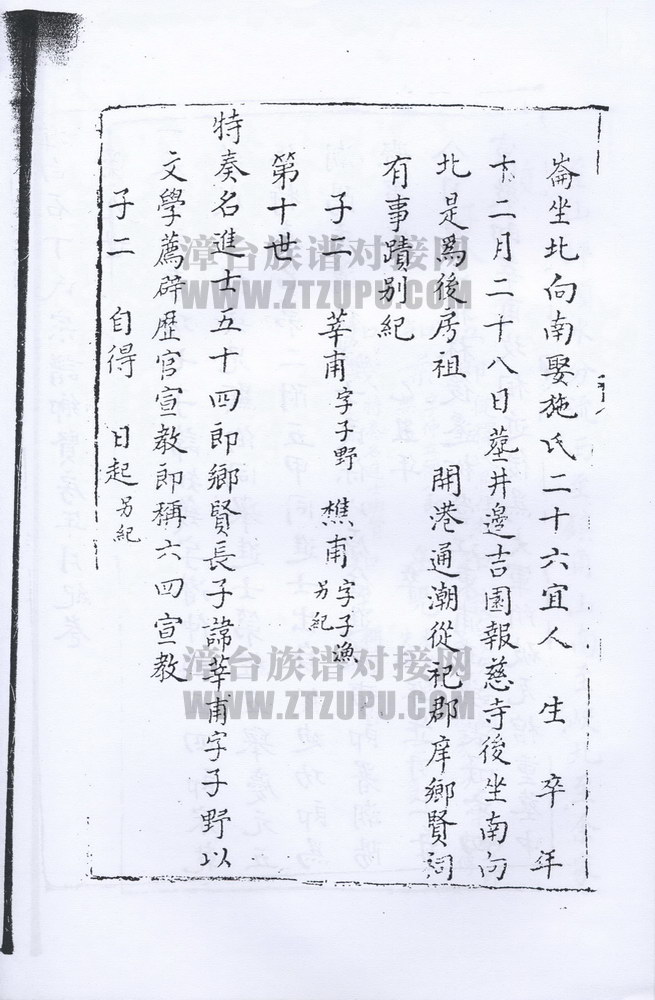 崙坐北向南娶施氏二十六宜人 生 卒 年
十二月二十八日葬井邊吉園報慈寺後坐南向
北是爲後房祖 開港通潮從祀郡庠鄉賢祠
有事蹟別紀
子二 莘甫字子野 樵甫字子漁另紀
第十世
特奏名進士五十四郎鄉賢長子諱莘甫字子野以
文學薦辟歷官宣教郎稱六四宣教
子二 自得 日起另紀
漳台族谱对接网
WWW.ZTZUPU.COM
漳台族谱对接网
WWW.ZTZUPU.COM